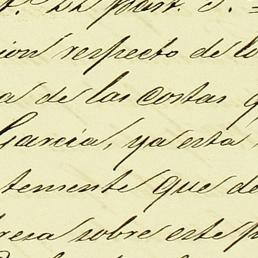 cion respecto de lo
a de las costas q
Garcia, ya esta
temente que de
resa sobre este p